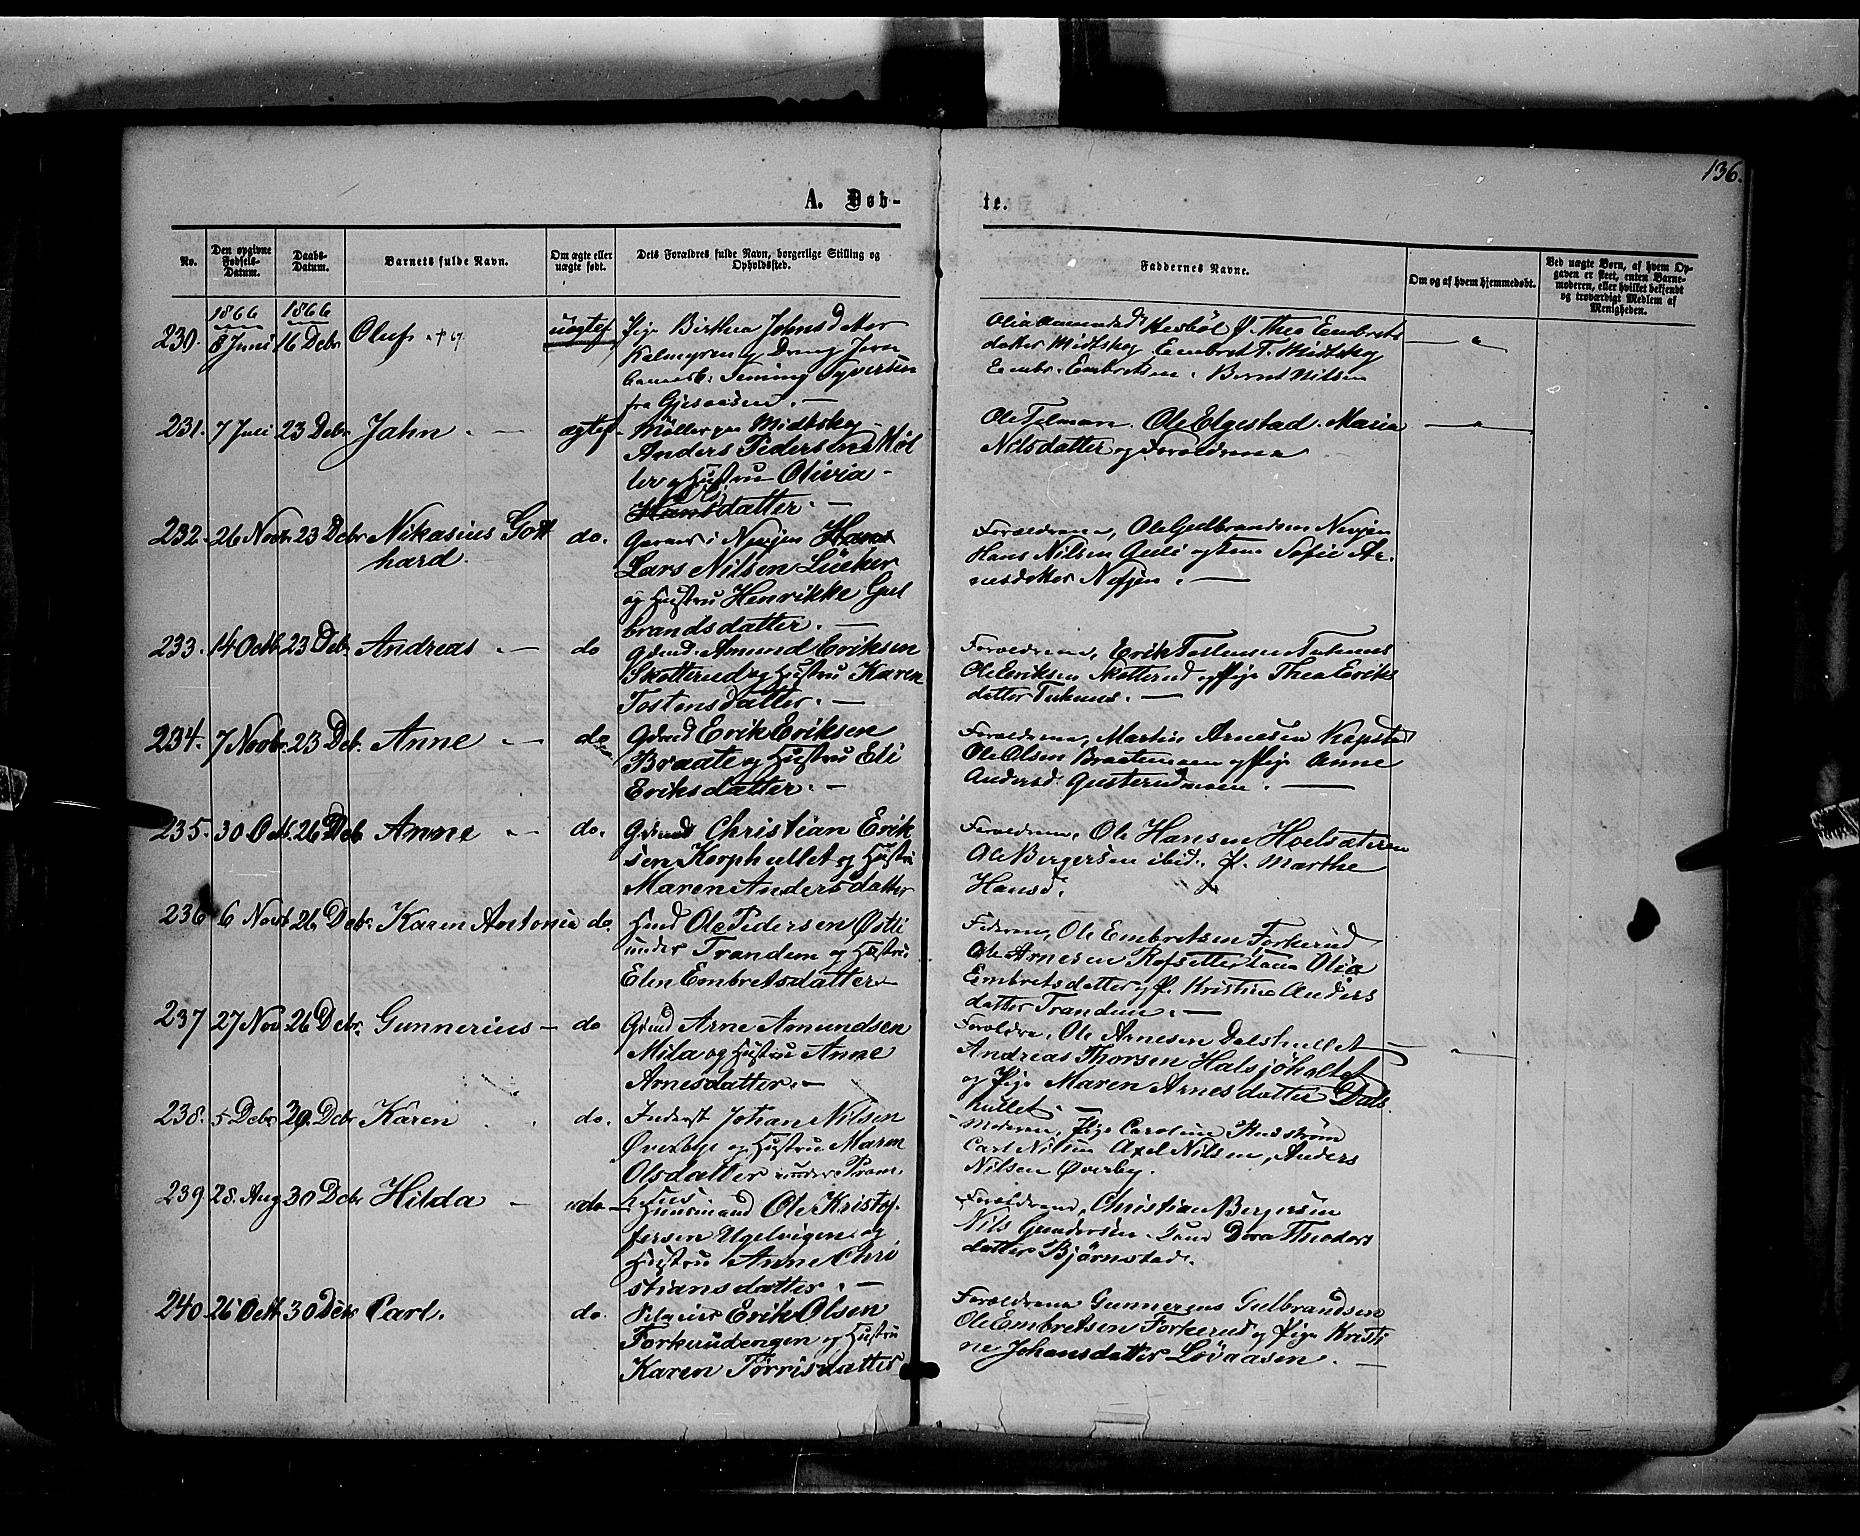 136.
A. Døb-
te.
No.
Den opgivne Fødsels-Datum.
Daabs-Datum.
Barnets fulde Navn.
Om ægte eller uægte født.
Dets Forældres fulde Navn, borgerlige Stilling og Opholdssted.
Faddernes Navne.
Om og af hvem hjemmedøbt.
Ved uægte Børn, af hvem Opgaven er skeet, enten Barnemoderen, eller hvilket bekjendt og troværdigt Medlem af Menigheden.
1866 1866
230. 8 Juni 16 Debr Oluf uægtef
Pige Birthea Johnsdatter
Kalmyren og Dreng Jern
Syvertsen
fra Gjesaasen. —
Midtskog Embret T. Midtskog
Embretsen. Bernt Nilsen
231. 7 Juli 23 Debr Jahn. — ægtef.
Midtskog
Anders Pedersen Møl
ler og Hustru Olivia
datter. —
Ole Elgestad. Maria
Nilsdatter og Forældrene
232. 26 Novbr 23 Debr Nikasius Gott
hard. do.
Lars Nilsen
og Hustru Henrikke Gul
brandsdatter. —
Forældrene, Ole Gulbrandsen
Hans Nilsen Sofie Ar-
nesdatter
233. 14 Octb 23 Debr Andreas — do
Grbd. Amund Eriksen
Skotterud og Hustru Karen
Tostensdatter. —
Forældrene, Erik Tostensen
Ole Eriksen Skotterud og Pige Thea Eriks
datter
234. 7 Novbr. 23 Deb. Anne — do
Erik Eriksen
Braate og Hustru Eli
Eriksdatter. —
Forældrene, Martin Arnesen
Ole Olsen Braatemoen og Pige Anne
Andersd. —
235. 30 Oct. 26 Deb Anne — do.
Christian Erik
sen Korphullet og Hustru
Maren Andersdatter
Forældrene, Ole Hansen
Ole Bergersen ibid. P. Marthe
Hansd.
236 6 Novb 26 Debr. Karen Antonia do.
Ole Pedersen Østli
under Trandem og Hustru
Elen Embretsdatter
Ole Embretsen Forkerud
Ole Arnesen Olia
Embretsdatter og P. Kristine Anders
datter Trandem. —
237 27 Nov 26 Debr. Gunnerius — do
Arne Amundsen
Mila og Hustru Anne
Arnesdatter. —
Ole Arnesen Dalshullet
Andreas Thorsen Halsjøholtet
og Pige Maren Arnesdatter Dals
hullet. —
238. 5 Debr 29 Debr Karen do.
Inderst Johan Nilsen
Øverbye og Hustru Maren
Olsdatter under
Moderen, Pige Caroline
Carl Nilsen Axel Nilsen, Anders
Nilsen Øverby.
239 28. Aug 30 Debr Hilda — do
Huusmand Ole Kristof-
fersen Ugelvigen og
Hustru Anne Chri
stiansdatter. —
Forældrene, Christian Bergersen
Nils Gundersen. Dora Theodors
datter Bjørnstad.
240. 26 Octb 30 Debr Carl. do.
Erik Olsen
Forkerudengen og Hustru
Karen Tørrisdatter
Forældrene Gunnerius Gulbrandsen
Ole Embretsen Forkerud og Pige Kristi
ne Johansdatter Løvaasen. —